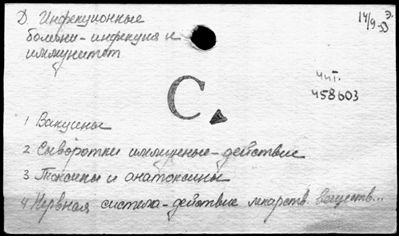 Д Инфекционные
болезни - инфекция и
иммунитет
14/9-53 Э.
С.
Чит.
458603
1 Вакцины
2 Сыворотки иммунные - действие
3 Токсины и анатоксины
4 Нервная система - действие лекарств. веществ...